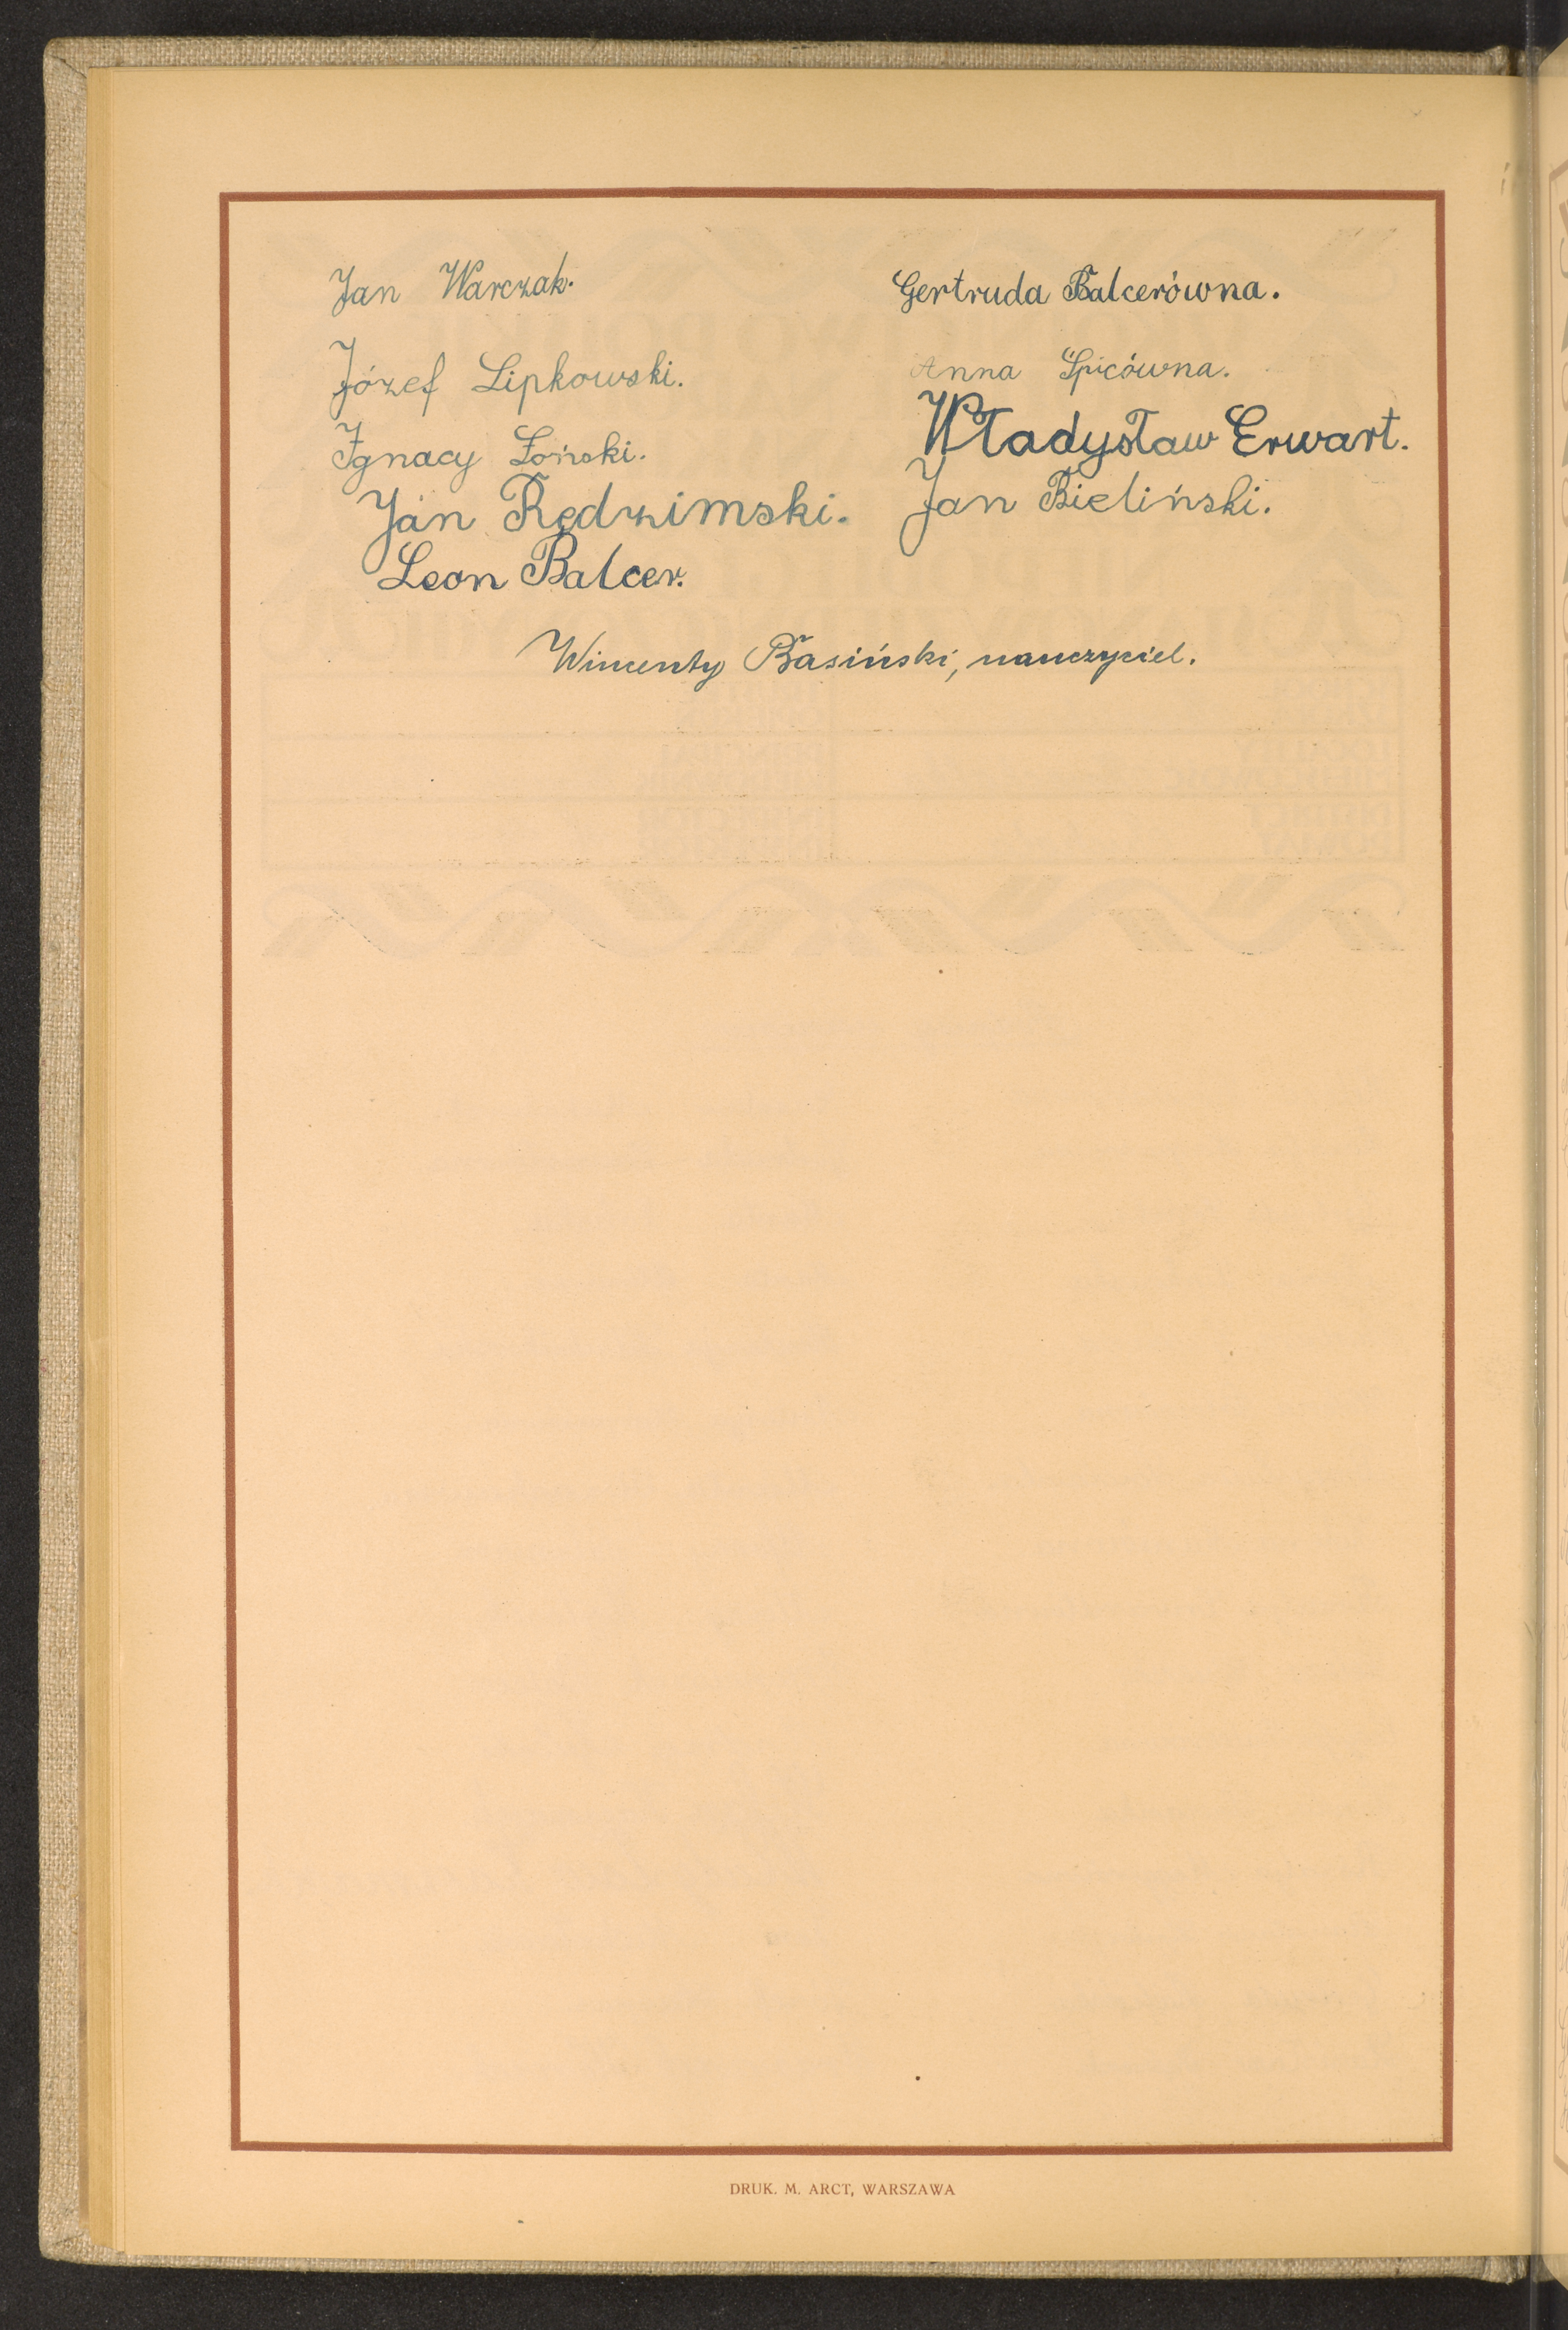 Jan Warczak.
Józef Lipkowski.
Ignacy Łoński.
Jan Rędzimski.
Leon Balcer.
Gertruda Balcerówna.
Anna Śpicówna.
Władysław Erwart.
Jan Bieliński.
Wincenty Basiński, nauczyciel.
DRUK. M. ARCT, WARSZAWA